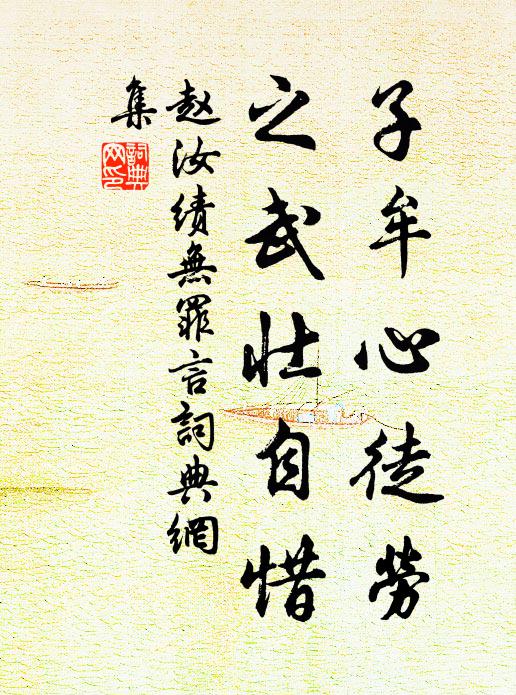 子牟心徒勞
之武壯自惜
赵汝績無罪言詞典網
集
詞典
网印